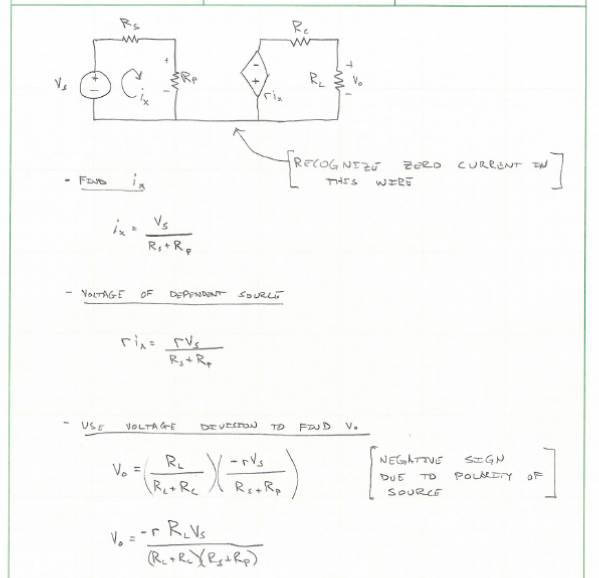 Rs Rc
Vs + − ix + Rp − − + rix RL + Vo −
[RECOGNIZE ZERO CURRENT IN
THIS WIRE]
- FIND ix
ix = Vs / (Rs + Rp)
- VOLTAGE OF DEPENDENT SOURCE
rix = rVs / (Rs + Rp)
- USE VOLTAGE DIVISION TO FIND Vo
Vo = (RL / (RL + Rc)) (-rVs / (Rs + Rp))
[NEGATIVE SIGN
DUE TO POLARITY OF
SOURCE]
Vo = -r RLVs / (RL + Rc)(Rs + Rp)